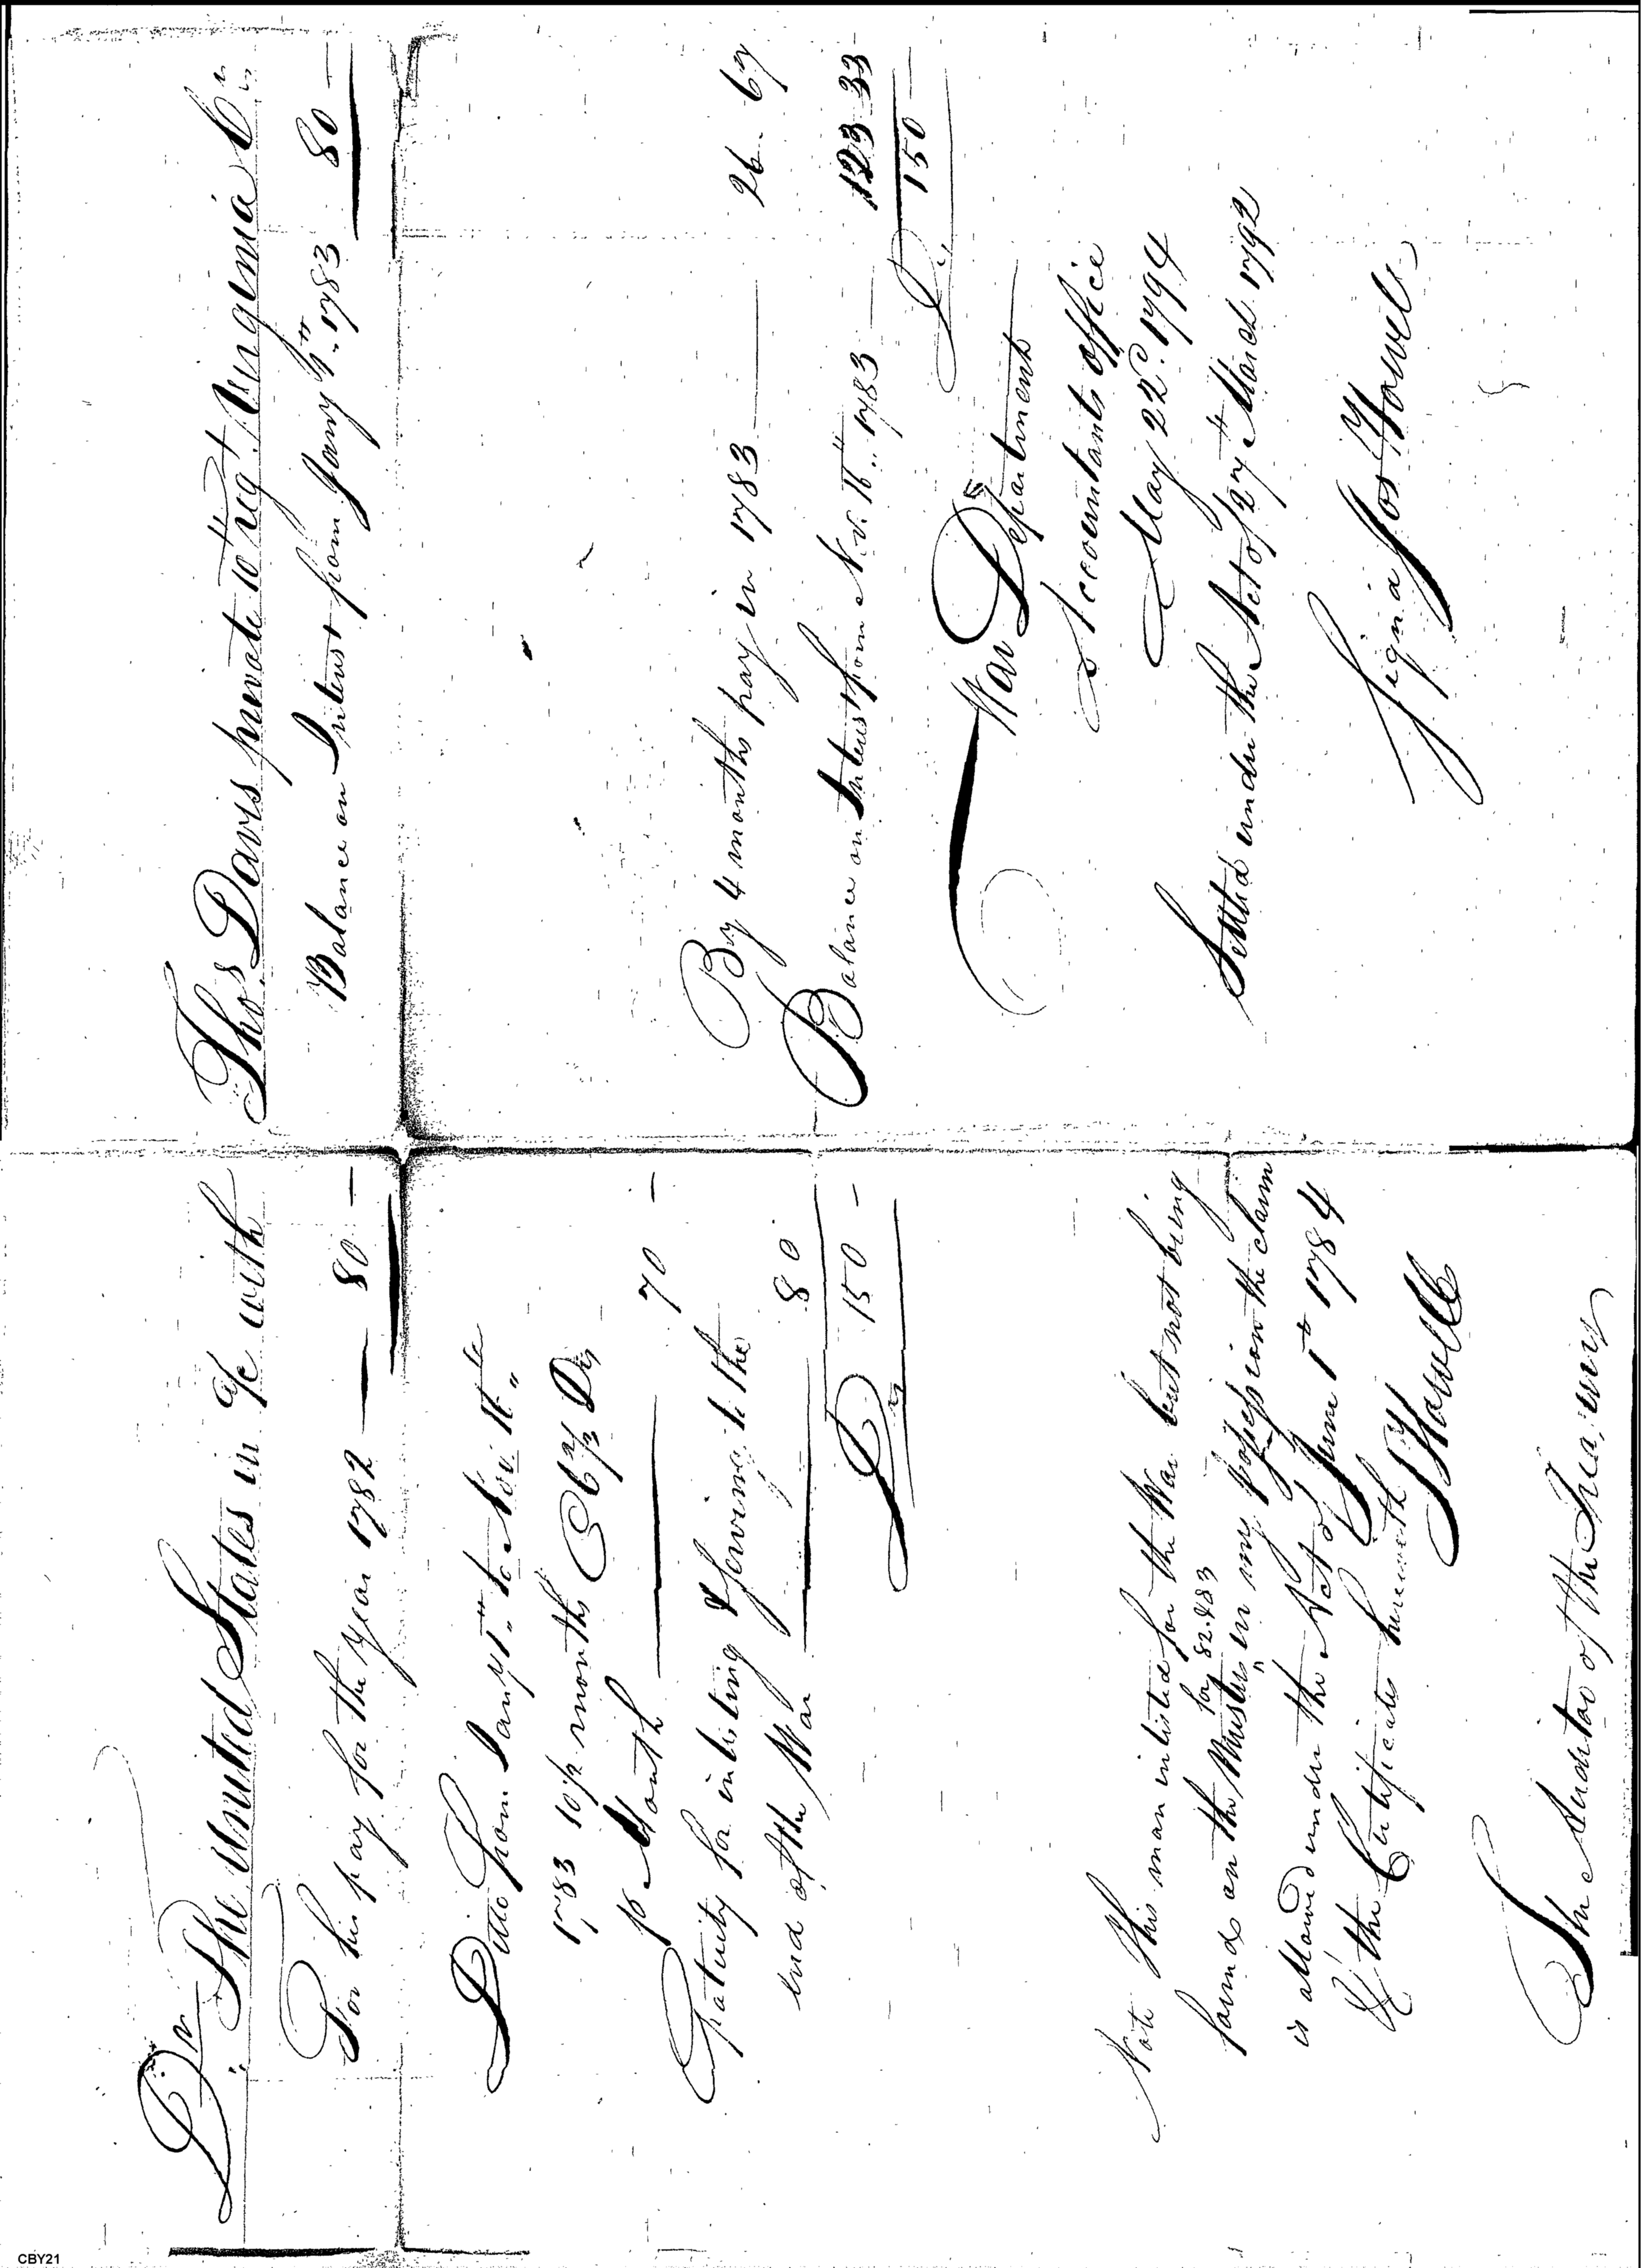 Dr. The United States in a/c with
For his pay for the year 1782 — 80 —
Ditto from Jany 1st to Nov. 15th
1783 10 1/2 months @ 6 2/3 Drs
pr Month — 70 —
Gratuity for inlisting & serving to the
end of the War — 80
Drs 150 —
Note This man inlisted for the War but not being
for 82 & 83
found on the Musters in my possession the claim
is allowed under the Act of June 1st 1784
of the Certificates herewith
J Howell
The Auditor of the Treasury
Thos Davis private 10th regt. Virginia Cr.
Balance on Interest from Jany 1st 1783 80 —
By 4 months pay in 1783 — 26. 67
Balance on Interest from Nov. 15th 1783 — 123 33
Drs 150 —
War Department
Accountants office
May 22d. 1794
Settled under the Act of 27th March 1792
Signd Jos Howell
CBY21